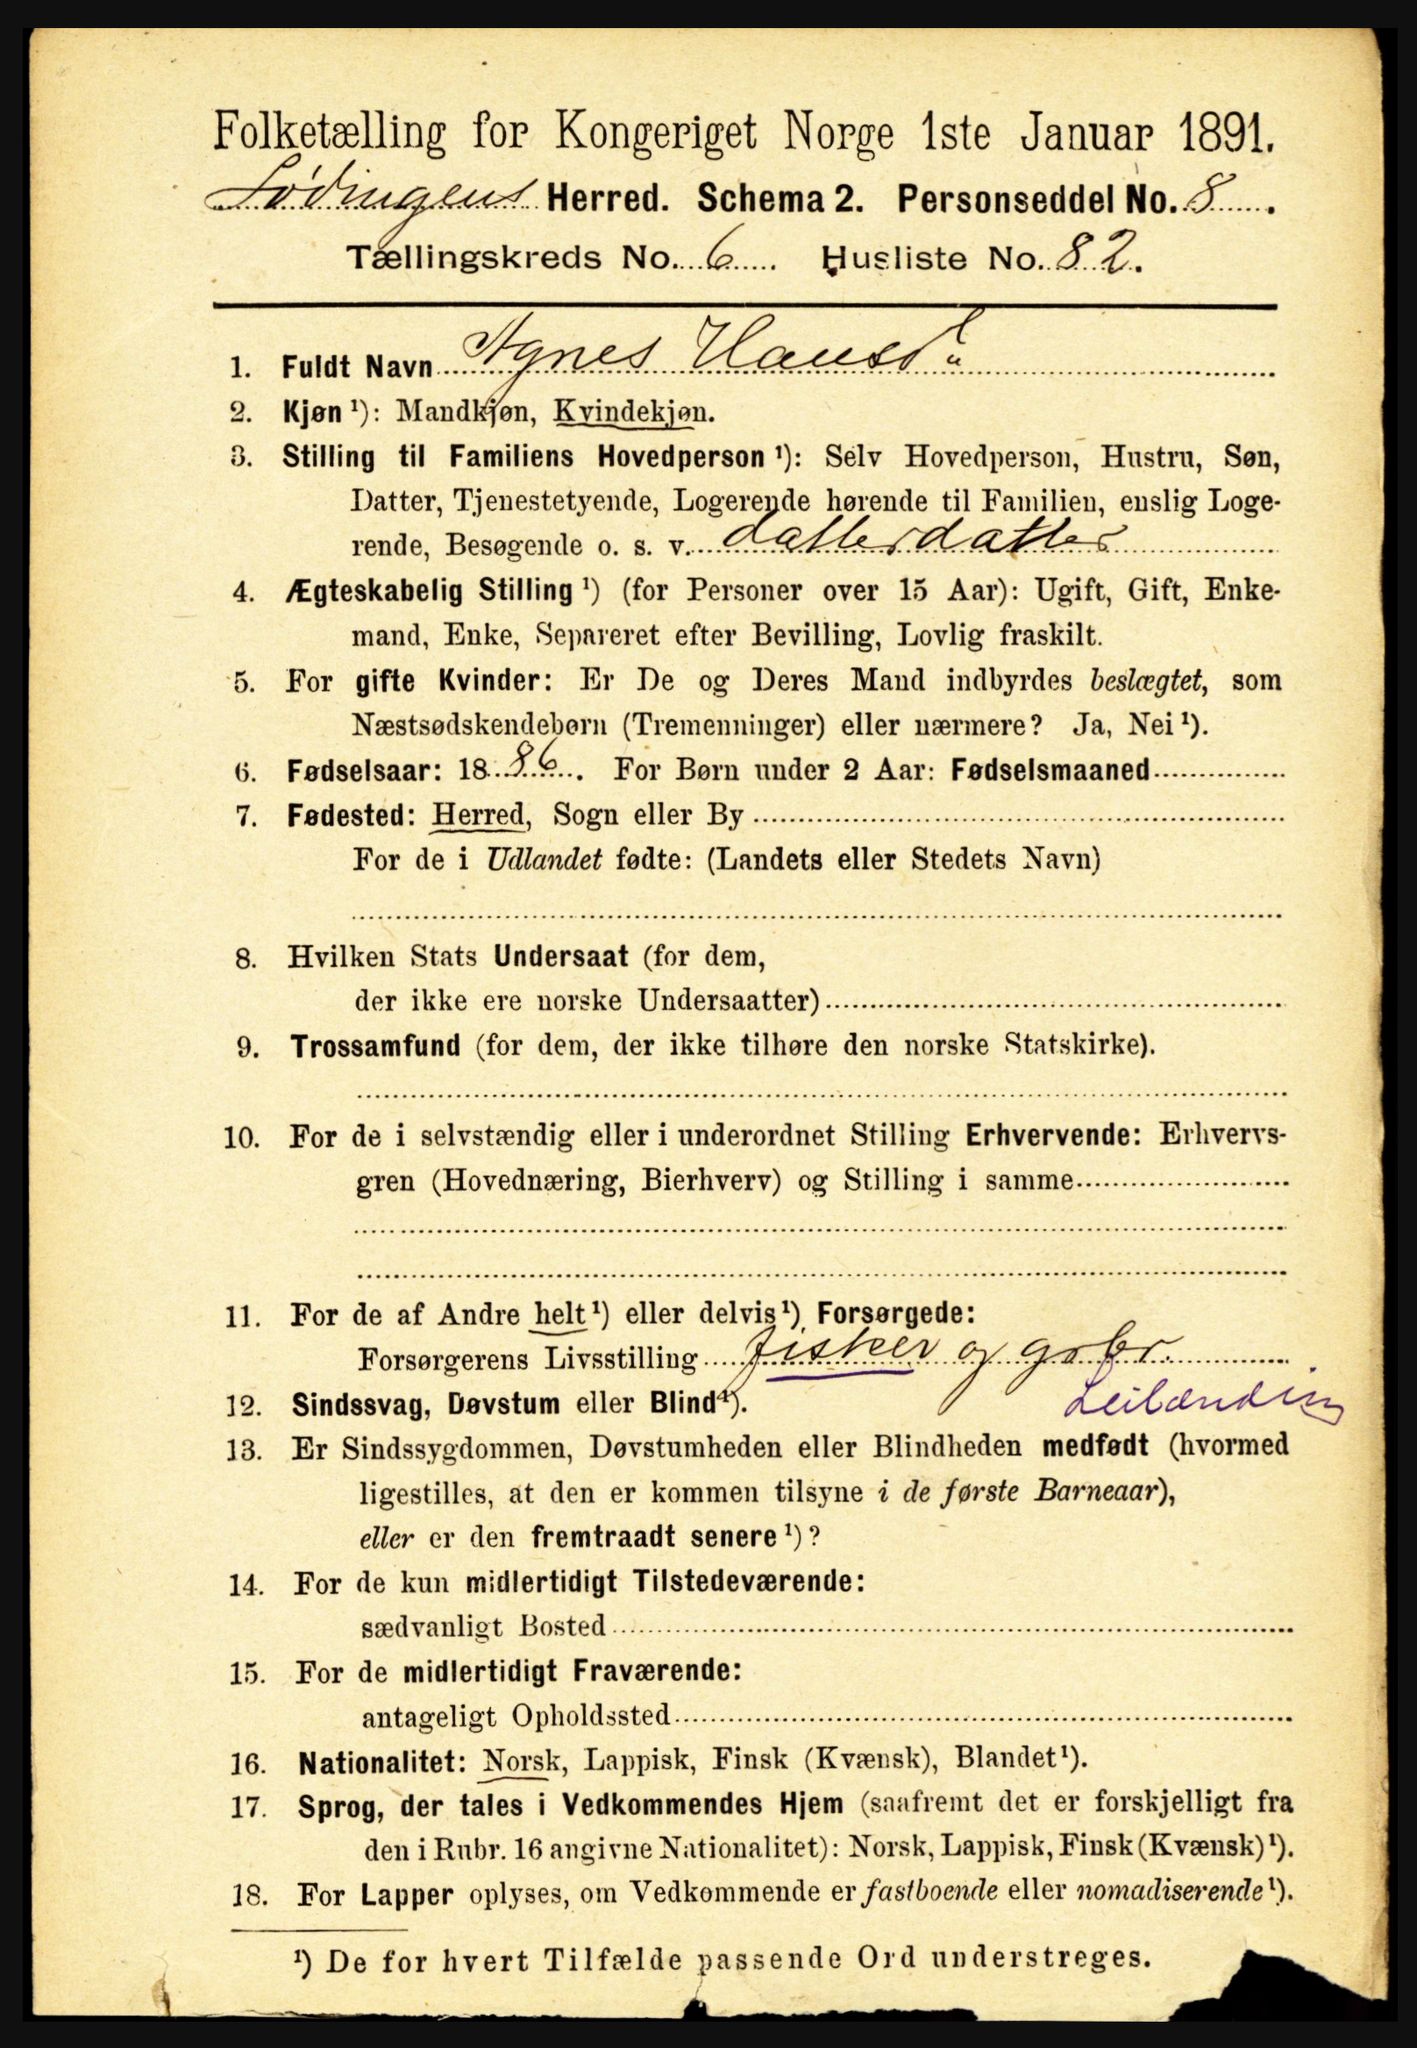 Folketælling for Kongeriget Norge 1ste Januar 1891.
Lødingens Herred. Schema 2. Personseddel No. 8.
Tællingskreds No. 6. Husliste No. 82.
1. Fuldt Navn Agnes Hansd
2. Kjøn ¹): Mandkjøn, Kvindekjøn.
3. Stilling til Familiens Hovedperson ¹): Selv Hovedperson, Hustru, Søn,
Datter, Tjenestetyende, Logerende hørende til Familien, enslig Loge-
rende, Besøgende o. s. v. datterdatter
4. Ægteskabelig Stilling ¹) (for Personer over 15 Aar): Ugift, Gift, Enke-
mand, Enke, Separeret efter Bevilling, Lovlig fraskilt.
5. For gifte Kvinder: Er De og Deres Mand indbyrdes beslægtet, som
Næstsødskendebørn (Tremenninger) eller nærmere? Ja, Nei ¹).
6. Fødselsaar: 1886. For Børn under 2 Aar: Fødselsmaaned
7. Fødested: Herred, Sogn eller By
For de i Udlandet fødte: (Landets eller Stedets Navn)
8. Hvilken Stats Undersaat (for dem,
der ikke ere norske Undersaatter)
9. Trossamfund (for dem, der ikke tilhøre den norske Statskirke).
10. For de i selvstændig eller i underordnet Stilling Erhvervende: Erhvervs-
gren (Hovednæring, Bierhverv) og Stilling i samme
11. For de af Andre helt ¹) eller delvis ¹) Forsørgede:
Forsørgerens Livsstilling fisker og grbr.
Leilænding
12. Sindssvag, Døvstum eller Blind ¹).
13. Er Sindssygdommen, Døvstumheden eller Blindheden medfødt (hvormed
ligestilles, at den er kommen tilsyne i de første Barneaar),
eller er den fremtraadt senere ¹)?
14. For de kun midlertidigt Tilstedeværende:
sædvanligt Bosted
15. For de midlertidigt Fraværende:
antageligt Opholdssted
16. Nationalitet: Norsk, Lappisk, Finsk (Kvænsk), Blandet ¹).
17. Sprog, der tales i Vedkommendes Hjem (saafremt det er forskjelligt fra
den i Rubr. 16 angivne Nationalitet): Norsk, Lappisk, Finsk (Kvænsk) ¹).
18. For Lapper oplyses, om Vedkommende er fastboende eller nomadiserende ¹).
¹) De for hvert Tilfælde passende Ord understreges.